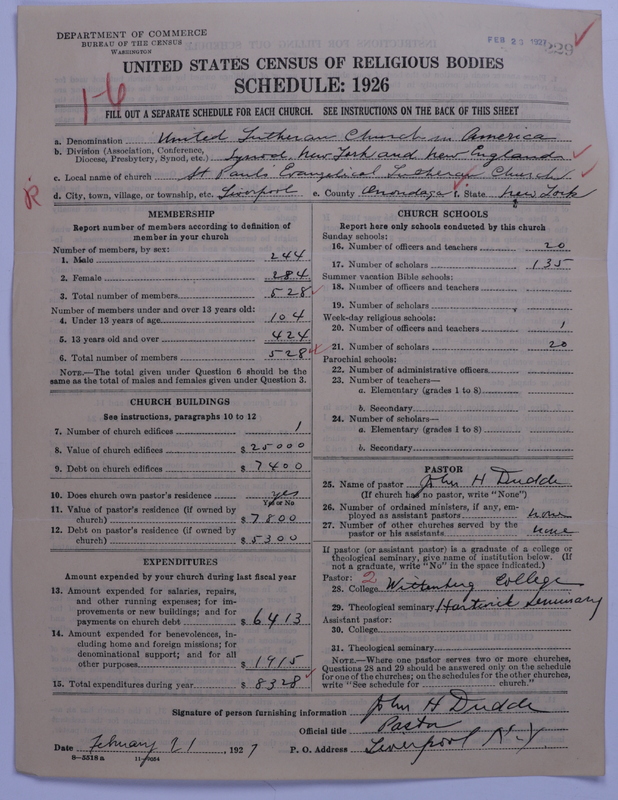 DEPARTMENT OF COMMERCE
BUREAU OF THE CENSUS
WASHINGTON
FEB 23 1927
229
UNITED STATES CENSUS OF RELIGIOUS BODIES
SCHEDULE: 1926
1-6
FILL OUT A SEPARATE SCHEDULE FOR EACH CHURCH. SEE INSTRUCTIONS ON THE BACK OF THIS SHEET
a. Denomination United Lutheran Church in America
b. Division (Association, Conference, Diocese, Presbytery, Synod, etc.) Synod. New York and New England
c. Local name of church St Paul's Evangelical Lutheran Church
d. City, town, village, or township, etc. Liverpool e. County Onondaga f. State New York
R
MEMBERSHIP
Report number of members according to definition of
member in your church
Number of members, by sex:
1. Male 244
2. Female 284
3. Total number of members 528
Number of members under and over 13 years old:
4. Under 13 years of age 104
5. 13 years old and over 424
6. Total number of members 528
NOTE.—The total given under Question 6 should be the
same as the total of males and females given under Question 3.
CHURCH BUILDINGS
See instructions, paragraphs 10 to 12
7. Number of church edifices 1
8. Value of church edifices $ 25000
9. Debt on church edifices $ 7400
10. Does church own pastor's residence yes
Yes or No
11. Value of pastor's residence (if owned by
church) $ 7800
12. Debt on pastor's residence (if owned by
church) $ 5300
EXPENDITURES
Amount expended by your church during last fiscal year
13. Amount expended for salaries, repairs,
and other running expenses; for im-
provements or new buildings; and for
payments on church debt $ 6413
14. Amount expended for benevolences, in-
cluding home and foreign missions; for
denominational support; and for all
other purposes $ 1915
15. Total expenditures during year $ 8328
CHURCH SCHOOLS
Report here only schools conducted by this church
Sunday schools:
16. Number of officers and teachers 20
17. Number of scholars 135
Summer vacation Bible schools:
18. Number of officers and teachers
19. Number of scholars
Week-day religious schools:
20. Number of officers and teachers 1
21. Number of scholars 20
Parochial schools:
22. Number of administrative officers
23. Number of teachers—
a. Elementary (grades 1 to 8)
b. Secondary
24. Number of scholars—
a. Elementary (grades 1 to 8)
b. Secondary
PASTOR
25. Name of pastor John H Dudde
(If church has no pastor, write "None")
26. Number of ordained ministers, if any, em-
ployed as assistant pastors none
27. Number of other churches served by the
pastor or his assistants none
If pastor (or assistant pastor) is a graduate of a college or
theological seminary, give name of institution below. (If
not a graduate, write "No" in the space indicated.)
Pastor: 2
28. College Wittenberg College
29. Theological seminary Hartwick Seminary
Assistant pastor:
30. College
31. Theological seminary
NOTE.—Where one pastor serves two or more churches,
Questions 28 and 29 should be answered only on the schedule
for one of the churches; on the schedules for the other churches,
write "See schedule for church."
Signature of person furnishing information John H Dudde
Official title Pastor
Date February 21 1927 P. O. Address Liverpool N.Y
8—5518 a 11—9054